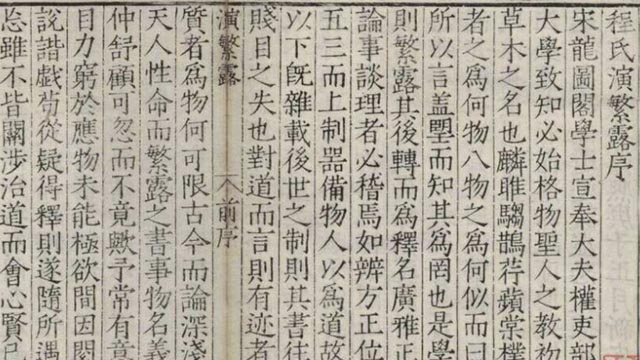 程氏演繁露序
宋龍圖閣學士宣奉大夫權吏部
大學致知必始格物聖人之教初
草木之名也麟雎騶鵲荇蘋棠樸
者之為何物八物之為何似而曰
所以言盖墍而知其為罔也是學
則繁露其後轉而為釋名廣雅正
論事談理者必稽焉如辨方正位
五三而上制器備物人以為道故
以下旣雜載後世之制則其書往
賤目之失也對道而言則有迹者
演繁露
前序
質者為物何可限古今而論深淺
天人性命而繁露之書事物名義
仲舒顧可忽而不竟歟予常有意
目力窮於應物未能極欲間因閱
說諧戲茍從疑得釋則遂隨所遇
忘雖不皆關涉治道而會心賢己